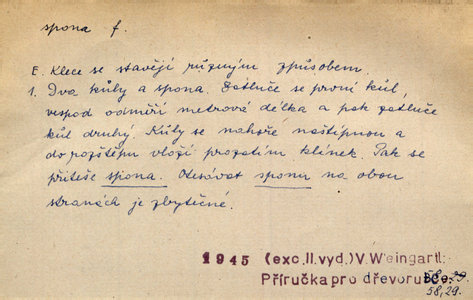 spona f.
E. Klece se stavějí různým způsobem.
1. Dva kůly a spona. Zatluče se první kůl,
vespod odměří metrová délka a pak zatluče
kůl druhý. Kůly se nahoře naštípnou a
do rozštěpu vloží prozatím klínek. Pak se
přiteše spona. Otesávat sponu na obou
stranách je zbytečné.
1945 (exc. II. vyd.) V. Weingartl:
Příručka pro dřevorubce.
58, 29.